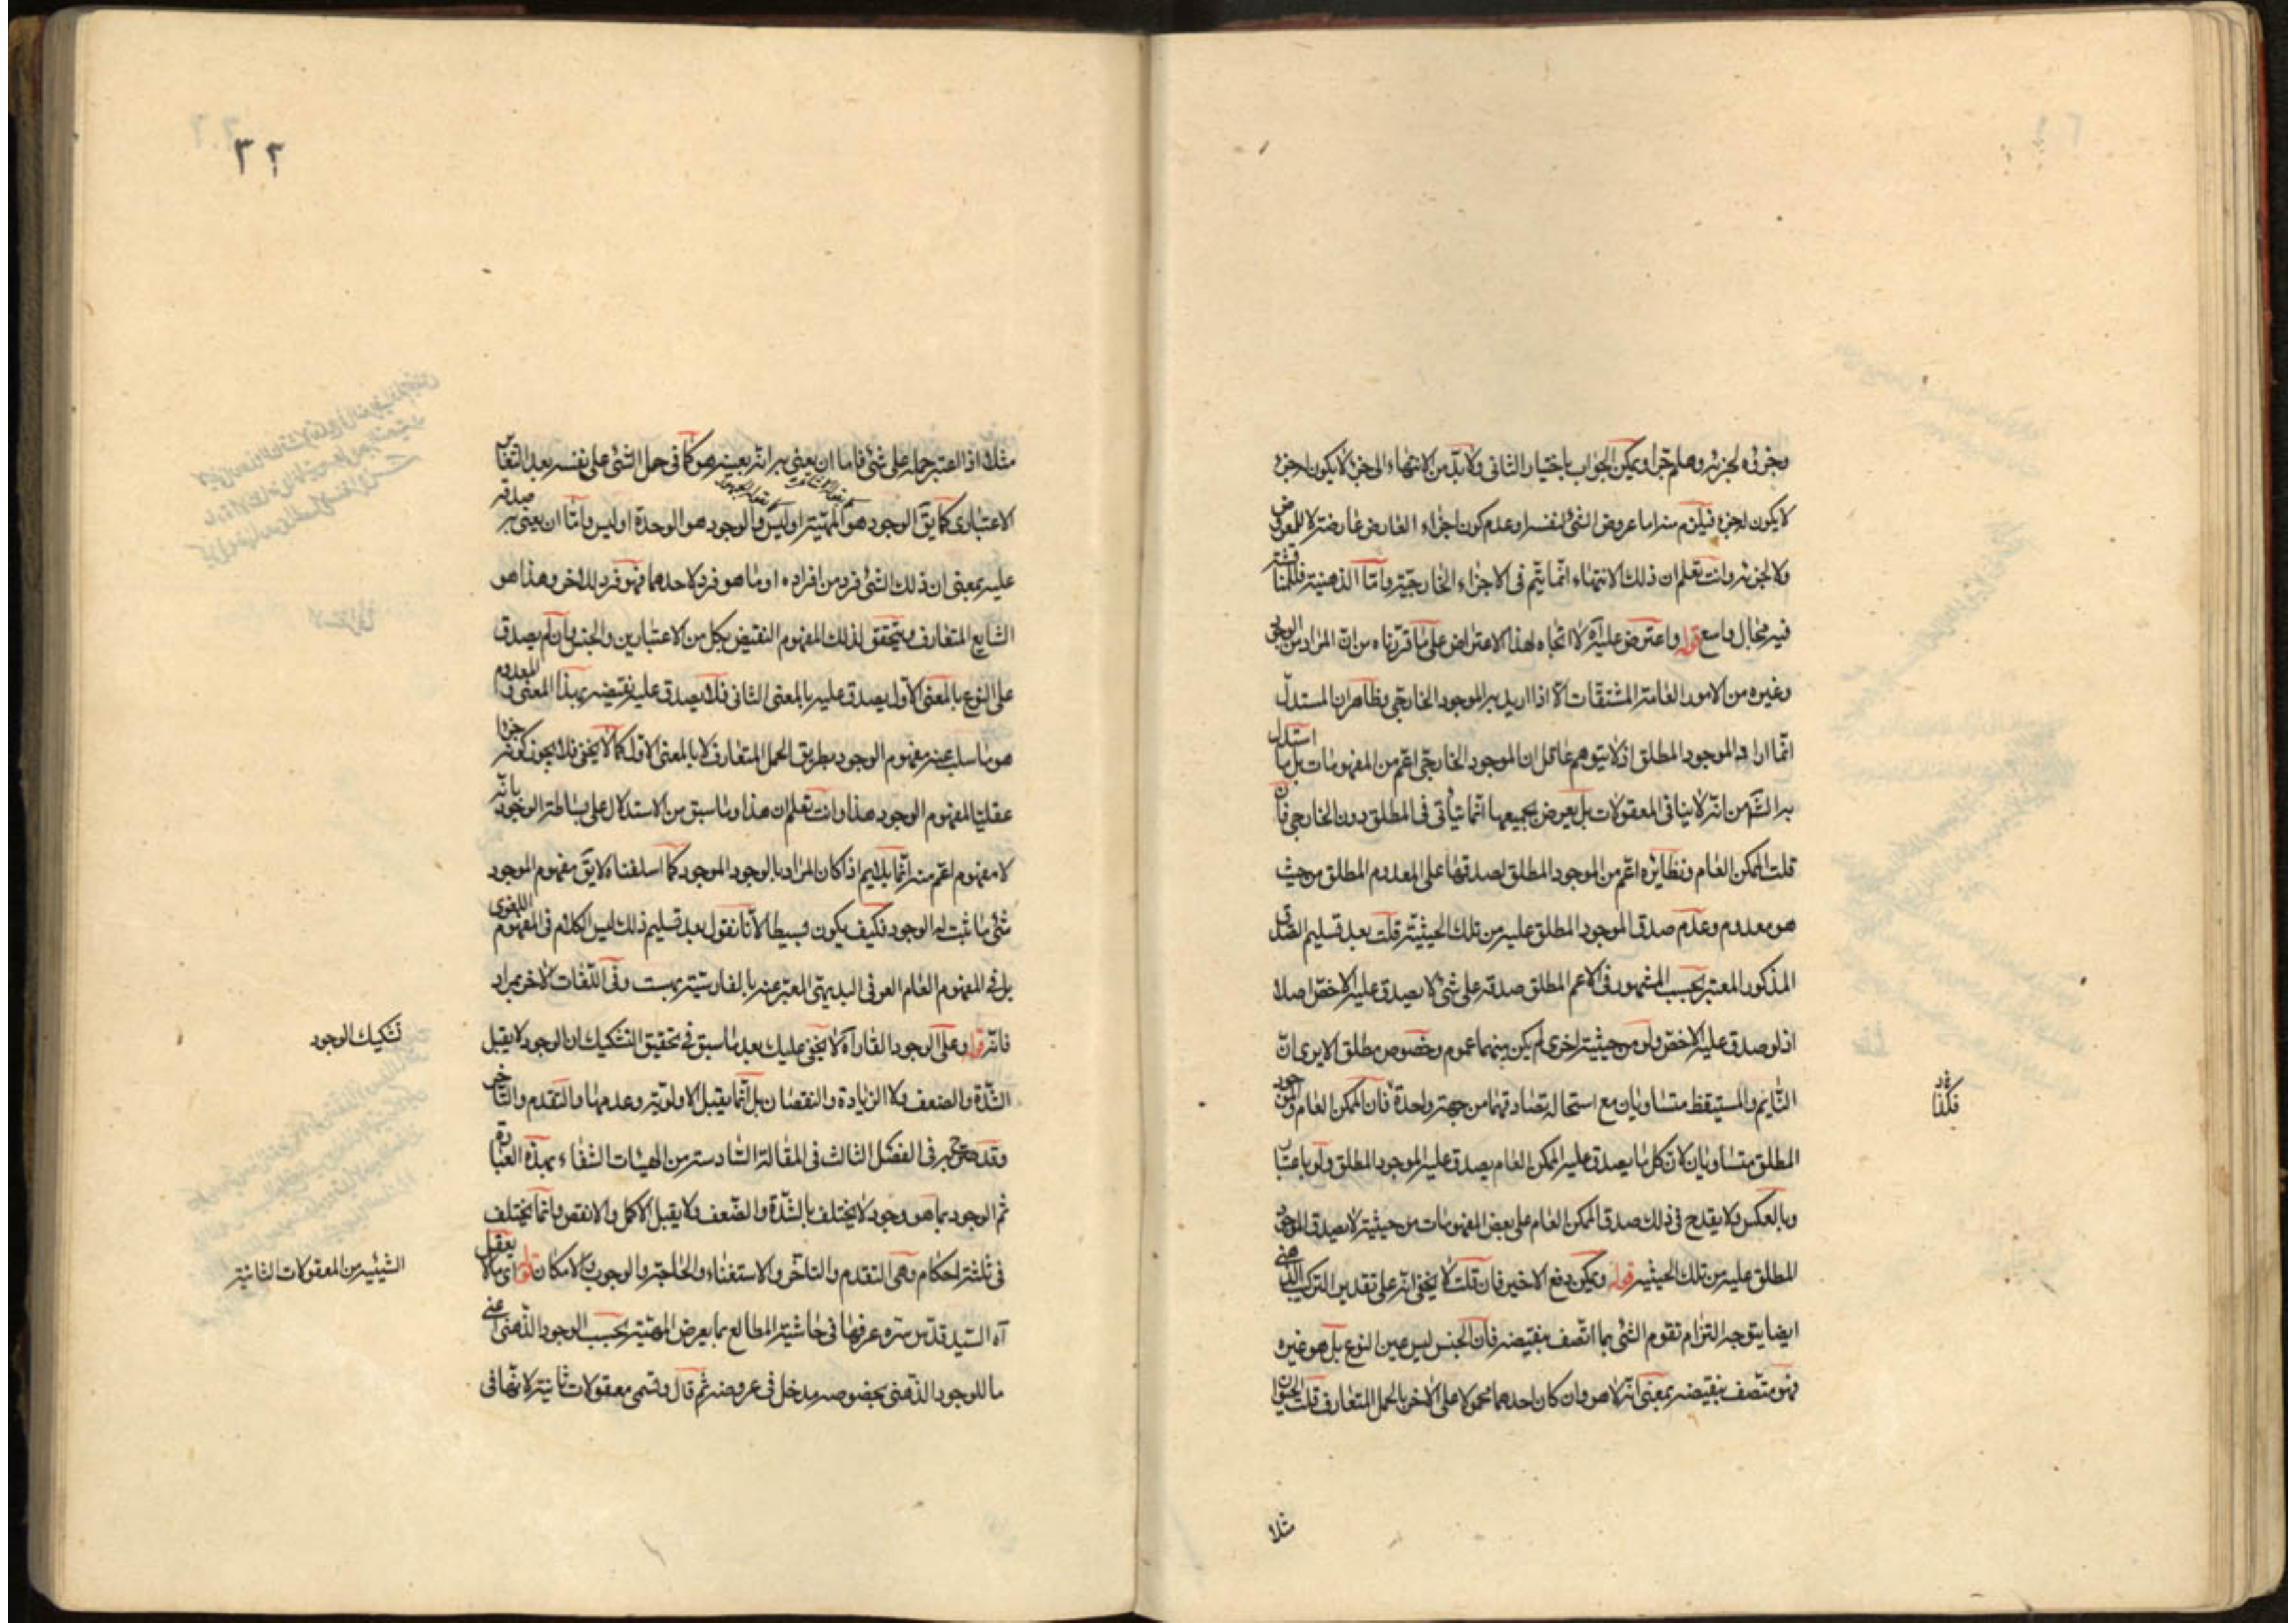 وجزؤه لجزئه وهلم جرا ويمكن الجواب باختيار الثانى ولا بد من الانتهاء الى جزء لا يكون لجزء
لا يكون لجزء فيلزم منه اما عروض الشئ لنفسه او عدم كون اجزاء العارض عارضة لا للمعروض
ولا لجزئه وانت تعلم ان ذلك الانتهاء انما يتم فى الاجزاء الخارجية واما الذهنية فللمناقشة
فيه مجال واسع قوله واعترض عليه آه لا اتجاه لهذا الاعتراض على ما قررناه من ان المراد من الوجود
وغيره من الامور العامة المشتقات الا اذا اريد به الموجود الخارجى وظاهر ان المستدل
انما اراد الموجود المطلق اذ لا يتوهم عاقل ان الموجود الخارجى اعم من المفهومات بل ما استدل
به الشه من انه لا ينافى المعقولات بل يعرض لجميعها انما يتأتى فى المطلق دون الخارجى فان
قلت الممكن العام ونظايره اعم من الموجود المطلق لصدقها على المعدوم المطلق من حيث
هو معدوم وعدم صدق الموجود المطلق عليه من تلك الحيثية قلت بعد تسليم الصدق
المذكور المعتبر بحسب المشهور فى الاعم المطلق صدقه على شئ لا يصدق عليه الاخص اصلا
اذ لو صدق عليه الاخص ولو من حيثية اخرى لم يكن بينهما عموم وخصوص مطلق الا يرى ان
النايم والمستيقظ متساويان مع استحالة تصادقهما من جهة واحدة فان الممكن العام والموجود
المطلق متساويان لان كل ما يصدق عليه الممكن العام يصدق عليه الموجود المطلق ولو باعتبار
وبالعكس ولا يقدح فى ذلك صدق الممكن العام على بعض المفهومات من حيثية لا يصدق الموجود
المطلق عليه من تلك الحيثية قوله ويمكن دفع الاخير فان قلت لا يخفى انه على تقدير التركيب الذهنى
ايضا يتوجه التزام تقوم الشئ بما اتصف بنقيضه فان الجنس ليس عين النوع بل هو غيره
فهو متصف بنقيضه بمعنى انه لا هو وان كان احدهما محمولا على الاخر بالحمل المتعارف قلت الحيوان
مثلا
فكذا
٢٢
مثلا اذا اعتبر حمله على شئ فاما ان يعنى به انه بعينه هو كما فى حمل الشئ على نفسه بعد التغاير
الاعتبارى كما يق الوجود هو المهية او ليس والوجود هو الوحدة او ليس واما ان يعنى به صدقه
عليه بمعنى ان ذلك الشئ فرد من افراده او ما هو فرد لاحدهما فهو فرد للاخر وهذا هو
الشايع المتعارف ويتحقق لذلك المفهوم النقيض بكل من الاعتبارين والجنس وان لم يصدق
على النوع بالمعنى الاول يصدق عليه بالمعنى الثانى فلا يصدق عليه نقيضه بهذا المعنى والمعدوم
هو ما سلب عنه مفهوم الوجود بطريق الحمل المتعارف لا بالمعنى الاول كما لا يخفى فلا يجوز كونه جزءا
عقليا لمفهوم الوجود هذا وانت تعلم ان هذا وما سبق من الاستدلال على بساطة الوجود بانه
لا مفهوم اعم منه انما يلايم اذا كان المراد بالوجود الموجود كما اسلفناه لا يق مفهوم الموجود
شئ ما ثبت له الوجود فكيف يكون بسيطا لانا نقول بعد تسليم ذلك ليس الكلام فى المفهوم اللغوى
بل فى المفهوم العام العرفى البديهى المعبر عنه بالفارسية بهست وفى اللغات الاخر بمراد
فاته قوله وعلى الوجود القار آه لا يخفى عليك بعد ما سبق فى تحقيق التشكيك ان الوجود لا يقبل
الشدة والضعف ولا الزيادة والنقصان بل انما يقبل الاولوية وعدمها والتقدم والتاخر
وقد صرح به فى الفصل الثالث فى المقالة السادسة من الهيات الشفاء بهذه العبارة
ثم الوجود بما هو وجود لا يختلف بالشدة والضعف ولا يقبل الاكمل والانقص وانما يختلف
فى ثلثة احكام وهى التقدم والتاخر والاستغناء والحاجة والوجوب والامكان قوله اى ما لا يعقل
آه السيد قدس سره عرفها فى حاشية المطالع بما يعرض المهية بحسب الوجود الذهنى اعنى
ما للوجود الذهنى بخصوصه مدخل فى عروضه ثم قال وتسمى معقولات ثانية لانها فى
تشكيك الوجود
الشيئية من المعقولات الثانية